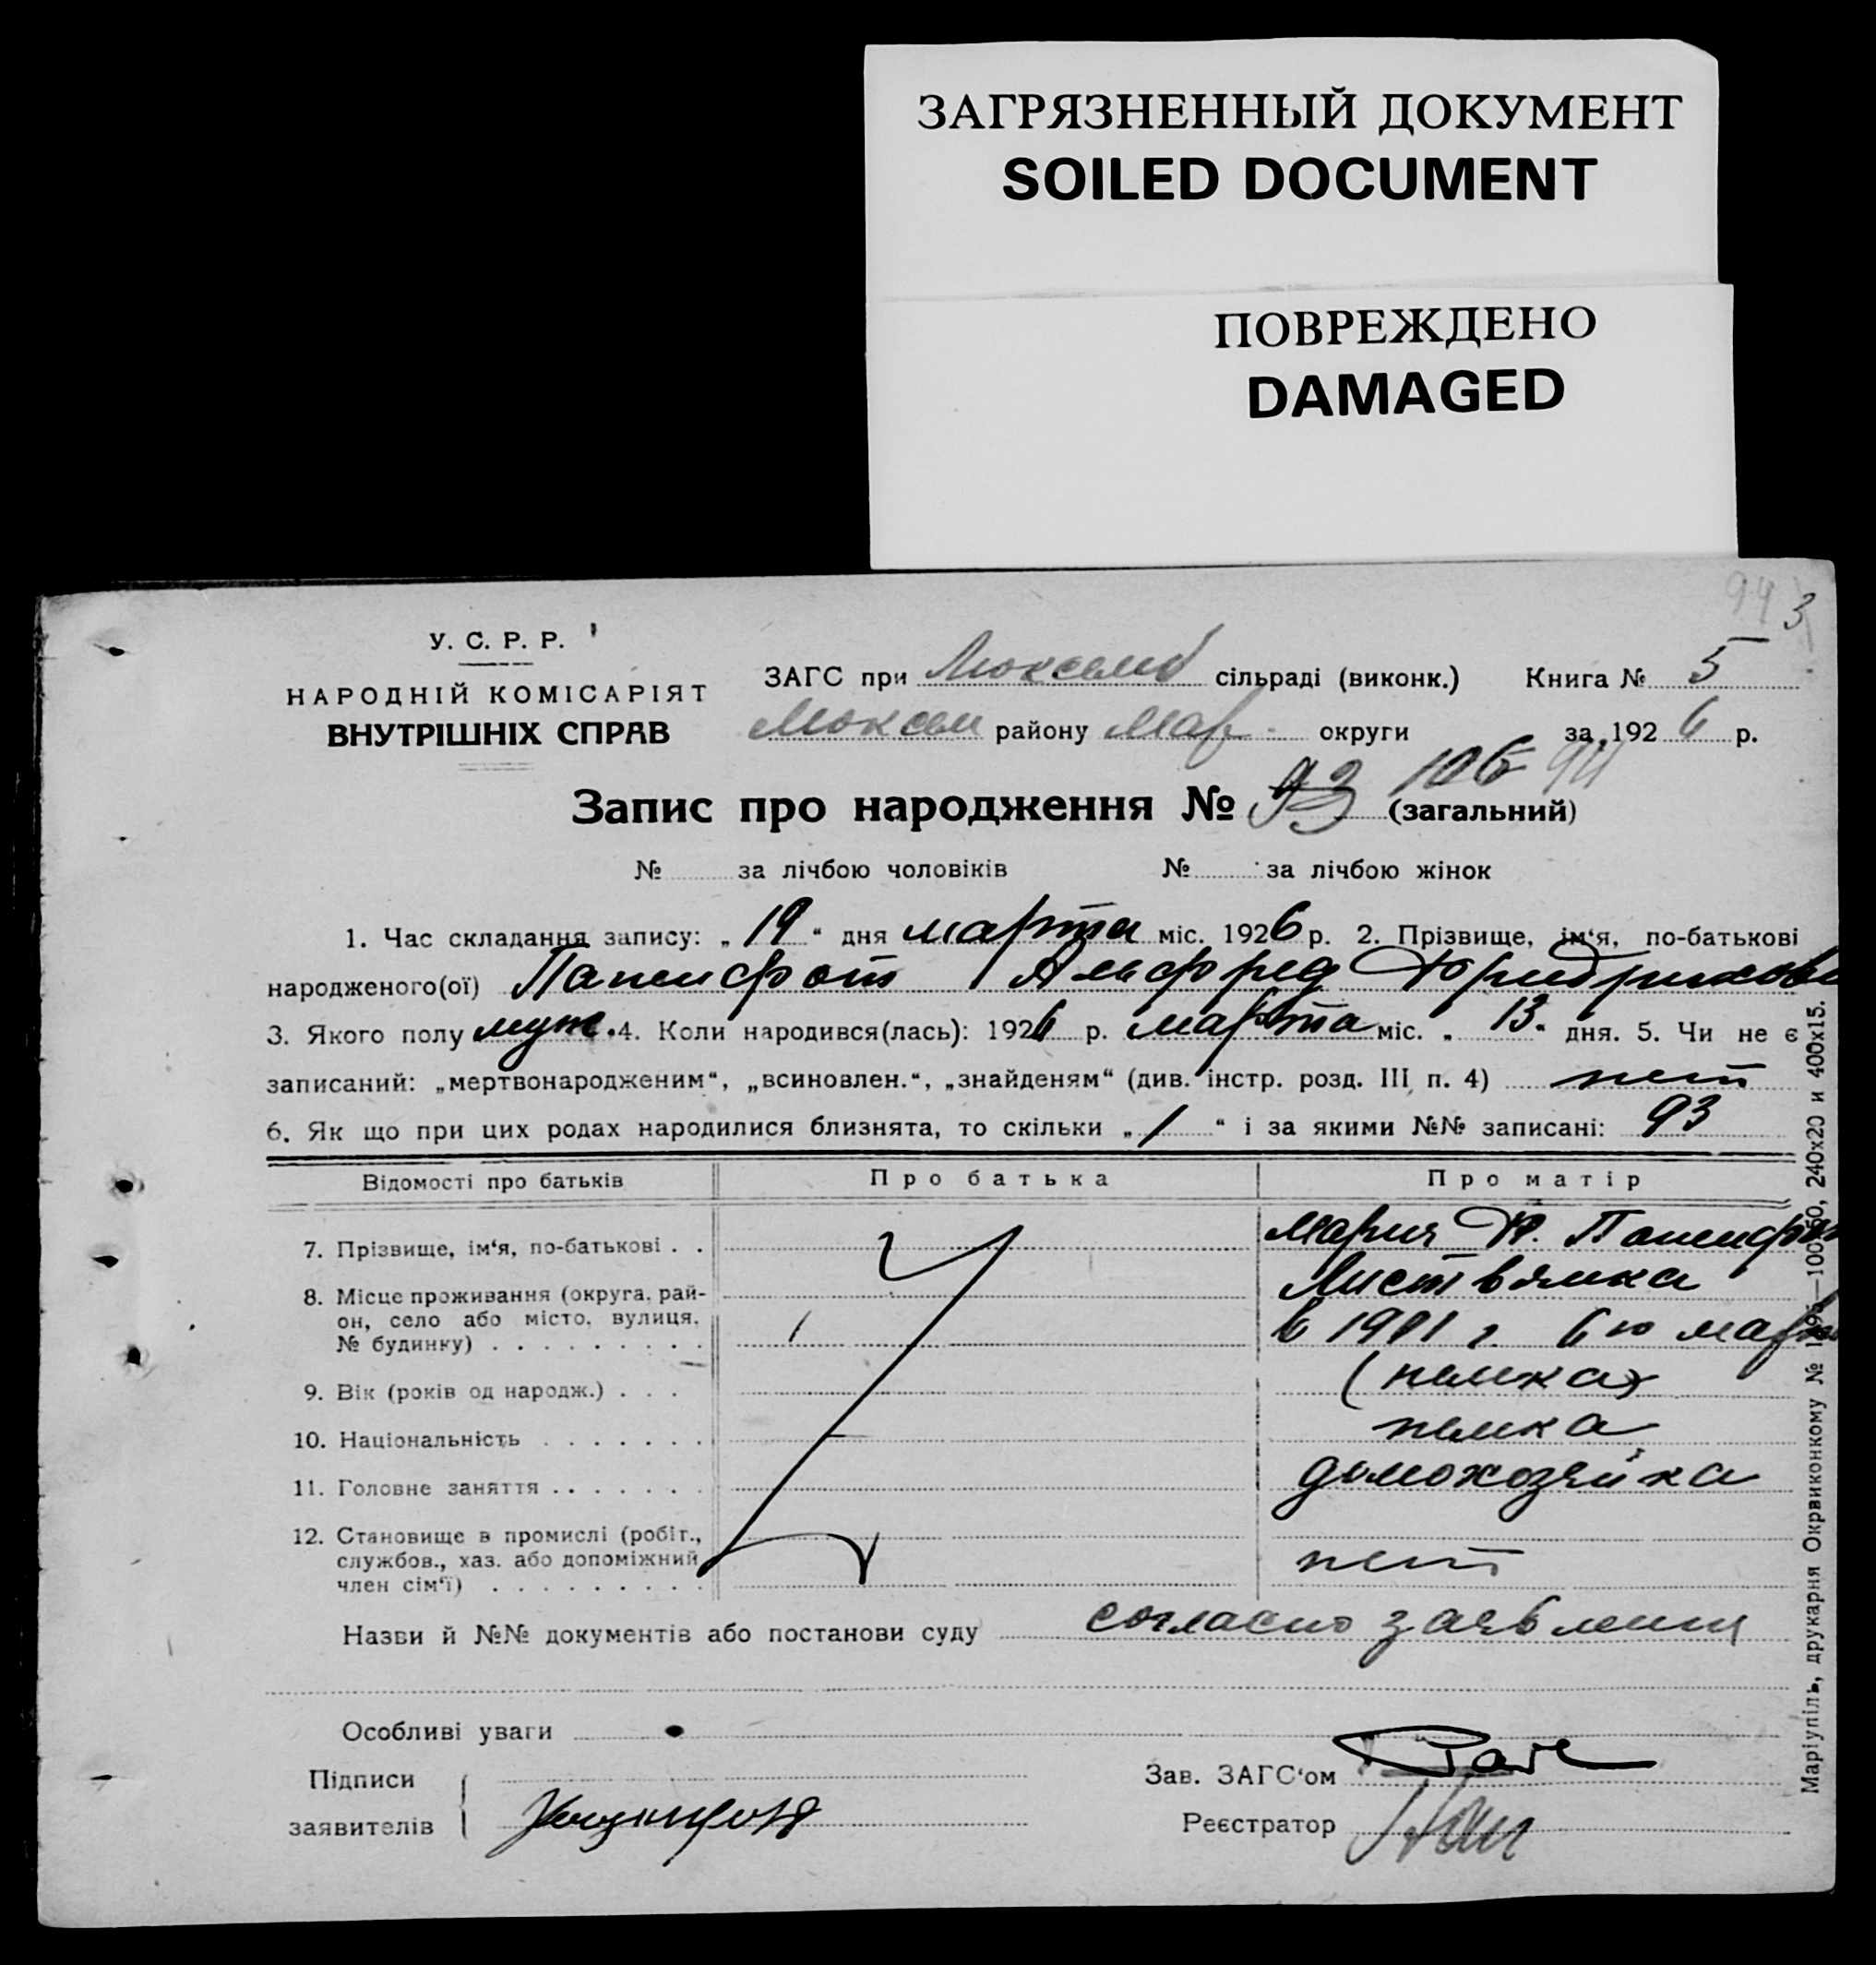 ЗАГРЯЗНЕННЫЙ ДОКУМЕНТ
SOILED DOCUMENT
ПОВРЕЖДЕНО
DAMAGED
94 3
У. С. Р. Р.
НАРОДНІЙ КОМІСАРІЯТ
ВНУТРІШНІХ СПРАВ
ЗАГС при сільраді (виконк.) Книга № 5
району Мар. округи за 1926 р.
Запис про народження № 93 106 94 (загальний)
№ за лічбою чоловіків № за лічбою жінок
1. Час складання запису: „19“ дня марта міс. 1926 р. 2. Прізвище, ім‘я, по-батькові
народженого(ої) Альфред
3. Якого полу муж. 4. Коли народився(лась): 1926 р. марта міс. „13“ дня. 5. Чи не є
записаний: „мертвонародженим“, „всиновлен.“, „знайденям“ (див. інстр. розд. III п. 4) нет
6. Як що при цих родах народилися близнята, то скільки „1“ і за якими №№ записані: 93
Відомості про батьків Про батька Про матір
7. Прізвище, ім‘я, по-батькові . . Мария
8. Місце проживання (округа, рай-
он, село або місто, вулиця,
№ будинку) . . . . . . . . . в 1901 г. 6го
9. Вік (років од народж.) . . . (немка)
10. Національність . . . . . . . немка
11. Головне заняття . . . . . . . домохозяйка
12. Становище в промислі (робіт.,
службов., хаз. або допоміжний
член сім‘ї) . . . . . . . . . нет
Назви й №№ документів або постанови суду согласно заявления
Особливі уваги
Підписи
заявителів
Зав. ЗАГС‘ом
Реєстратор
Маріупіль, друкарня Окрвиконкому № 240х20 и 400х15.